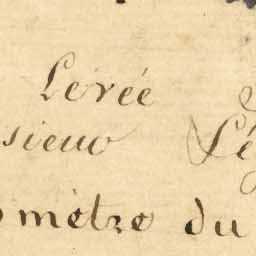 Levée
sieur Lé
mètre du